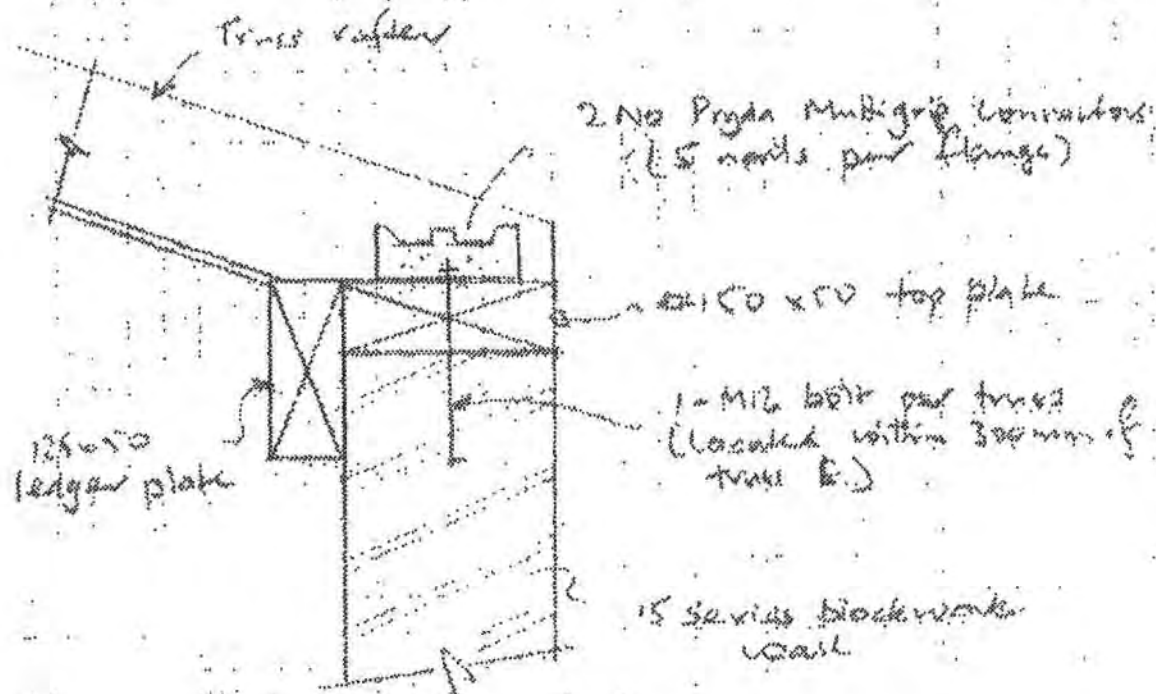 Truss rafter
2 No Pryda Multigrip Connectors
(5 nails per flange)
150 x 50 top plate
1-M12 bolt per truss
(Located within 300mm of
truss ℄.)
125x50
ledger plate
15 series blockwork
wall